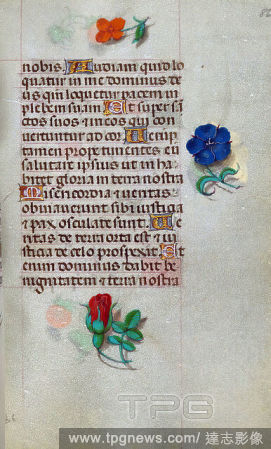 nobis. Audiam quid lo
quatur in me dominus de
us qui loquetur pacem in
plebem suam. Et super sā
ctos suos et in eos qui con
uertuntur ad cor. Uerūp
tamen prope timentes eū
salutare ipsius ut in ha
bitet gloria in terra nostra
Misericordia et ueritas
obuiauerunt sibi iusticia
et pax osculate sunt. Ue
ritas de terra orta est et ius
ticia de celo prospexit. Et
enim dominus dabit be
nignitatem et terra nostra
TPG
www.tpgnews.com / 達志影像